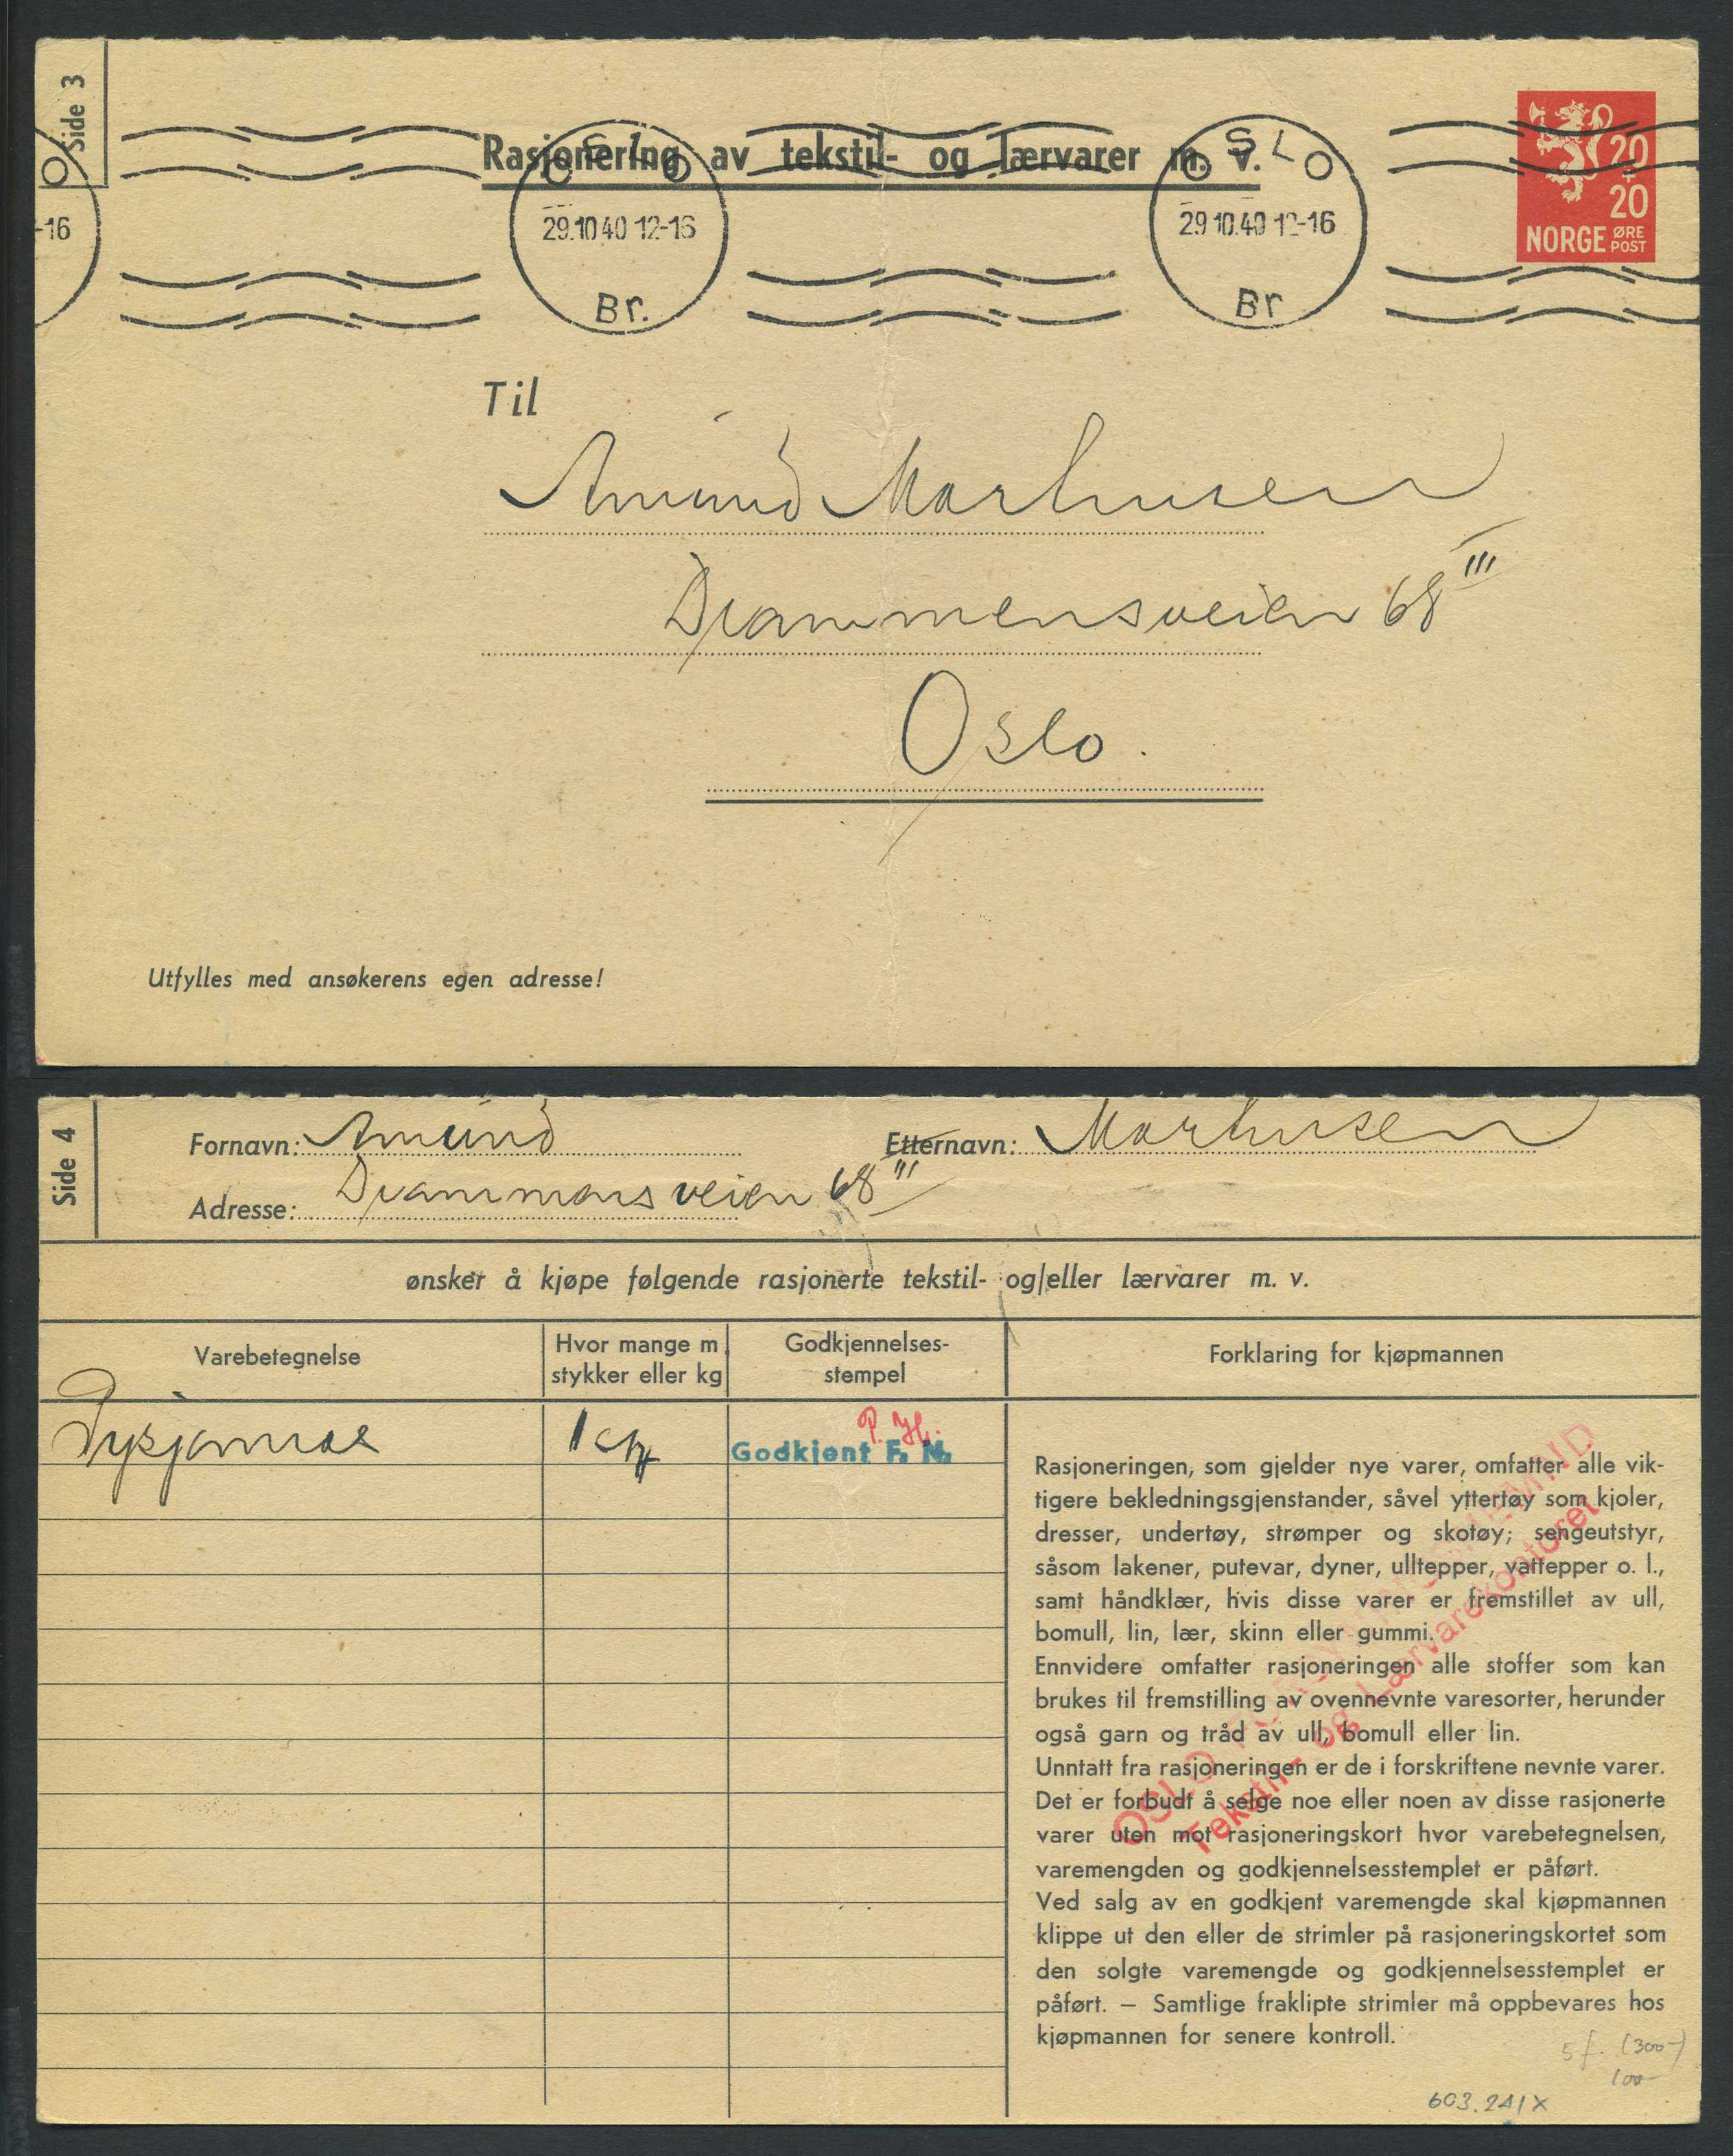 Side 3
Rasjonering av tekstil- og lærvarer m. v.
OSLO
29.10.40 12-16
Br.
OSLO
29.10.40 12-16
Br
O
-16
20
+
20
NORGE ØRE
POST
Til
Amund Marhusen
Drammensveien 68 III
Oslo.
Utfylles med ansøkerens egen adresse!
Side 4
Fornavn: Amund
Etternavn: Marhusen
Adresse: Drammensveien 68 III
ønsker å kjøpe følgende rasjonerte tekstil- og/eller lærvarer m. v.
Varebetegnelse
Hvor mange m
stykker eller kg
Godkjennelses-
stempel
Forklaring for kjøpmannen
1
P. H.
Godkjent F. N.
Rasjoneringen, som gjelder nye varer, omfatter alle vik-
tigere bekledningsgjenstander, såvel yttertøy som kjoler,
dresser, undertøy, strømper og skotøy; sengeutstyr,
såsom lakener, putevar, dyner, ulltepper, vattepper o. l.,
samt håndklær, hvis disse varer er fremstillet av ull,
bomull, lin, lær, skinn eller gummi.
Ennvidere omfatter rasjoneringen alle stoffer som kan
brukes til fremstilling av ovennevnte varesorter, herunder
også garn og tråd av ull, bomull eller lin.
Unntatt fra rasjoneringen er de i forskriftene nevnte varer.
Det er forbudt å selge noe eller noen av disse rasjonerte
varer uten mot rasjoneringskort hvor varebetegnelsen,
varemengden og godkjennelsesstemplet er påført.
Ved salg av en godkjent varemengde skal kjøpmannen
klippe ut den eller de strimler på rasjoneringskortet som
den solgte varemengde og godkjennelsesstemplet er
påført. — Samtlige fraklipte strimler må oppbevares hos
kjøpmannen for senere kontroll.
OSLO
Tekstil- og Lærvarekontoret
5f. (300-)
100-
603.241X